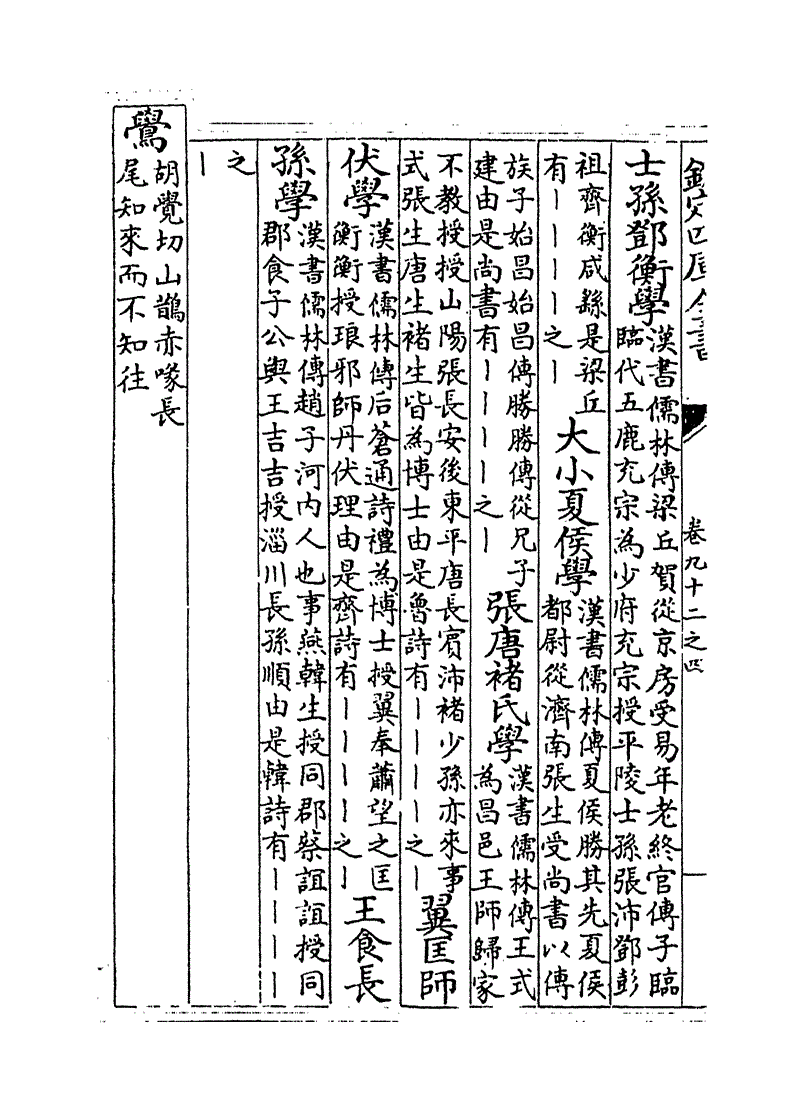 欽定四庫全書
卷九十二之四
士孫鄧衡學
漢書儒林傳梁丘賀從京房受易年老終官傳子臨
臨代五鹿充宗為少府充宗授平陵士孫張沛鄧彭
祖齊衡咸繇是梁丘
有丨丨丨丨之丨
大小夏侯學
漢書儒林傳夏侯勝其先夏侯
都尉從濟南張生受尚書以傳
族子始昌始昌傳勝勝傳從兄子
建由是尚書有丨丨丨丨之丨
張唐褚氏學
漢書儒林傳王式
為昌邑王師歸家
不教授授山陽張長安後東平唐長賓沛褚少孫亦來事
式張生唐生褚生皆為博士由是魯詩有丨丨丨丨之丨
翼匡師
伏學
漢書儒林傳后蒼通詩禮為博士授翼奉蕭望之匡
衡衡授琅邪師丹伏理由是齊詩有丨丨丨丨之丨
王食長
孫學
漢書儒林傳趙子河内人也事燕韓生授同郡蔡誼誼授同
郡食子公與王吉吉授淄川長孫順由是韓詩有丨丨丨丨
之
丨
鷽
胡覺切山鵲赤喙長
尾知來而不知往